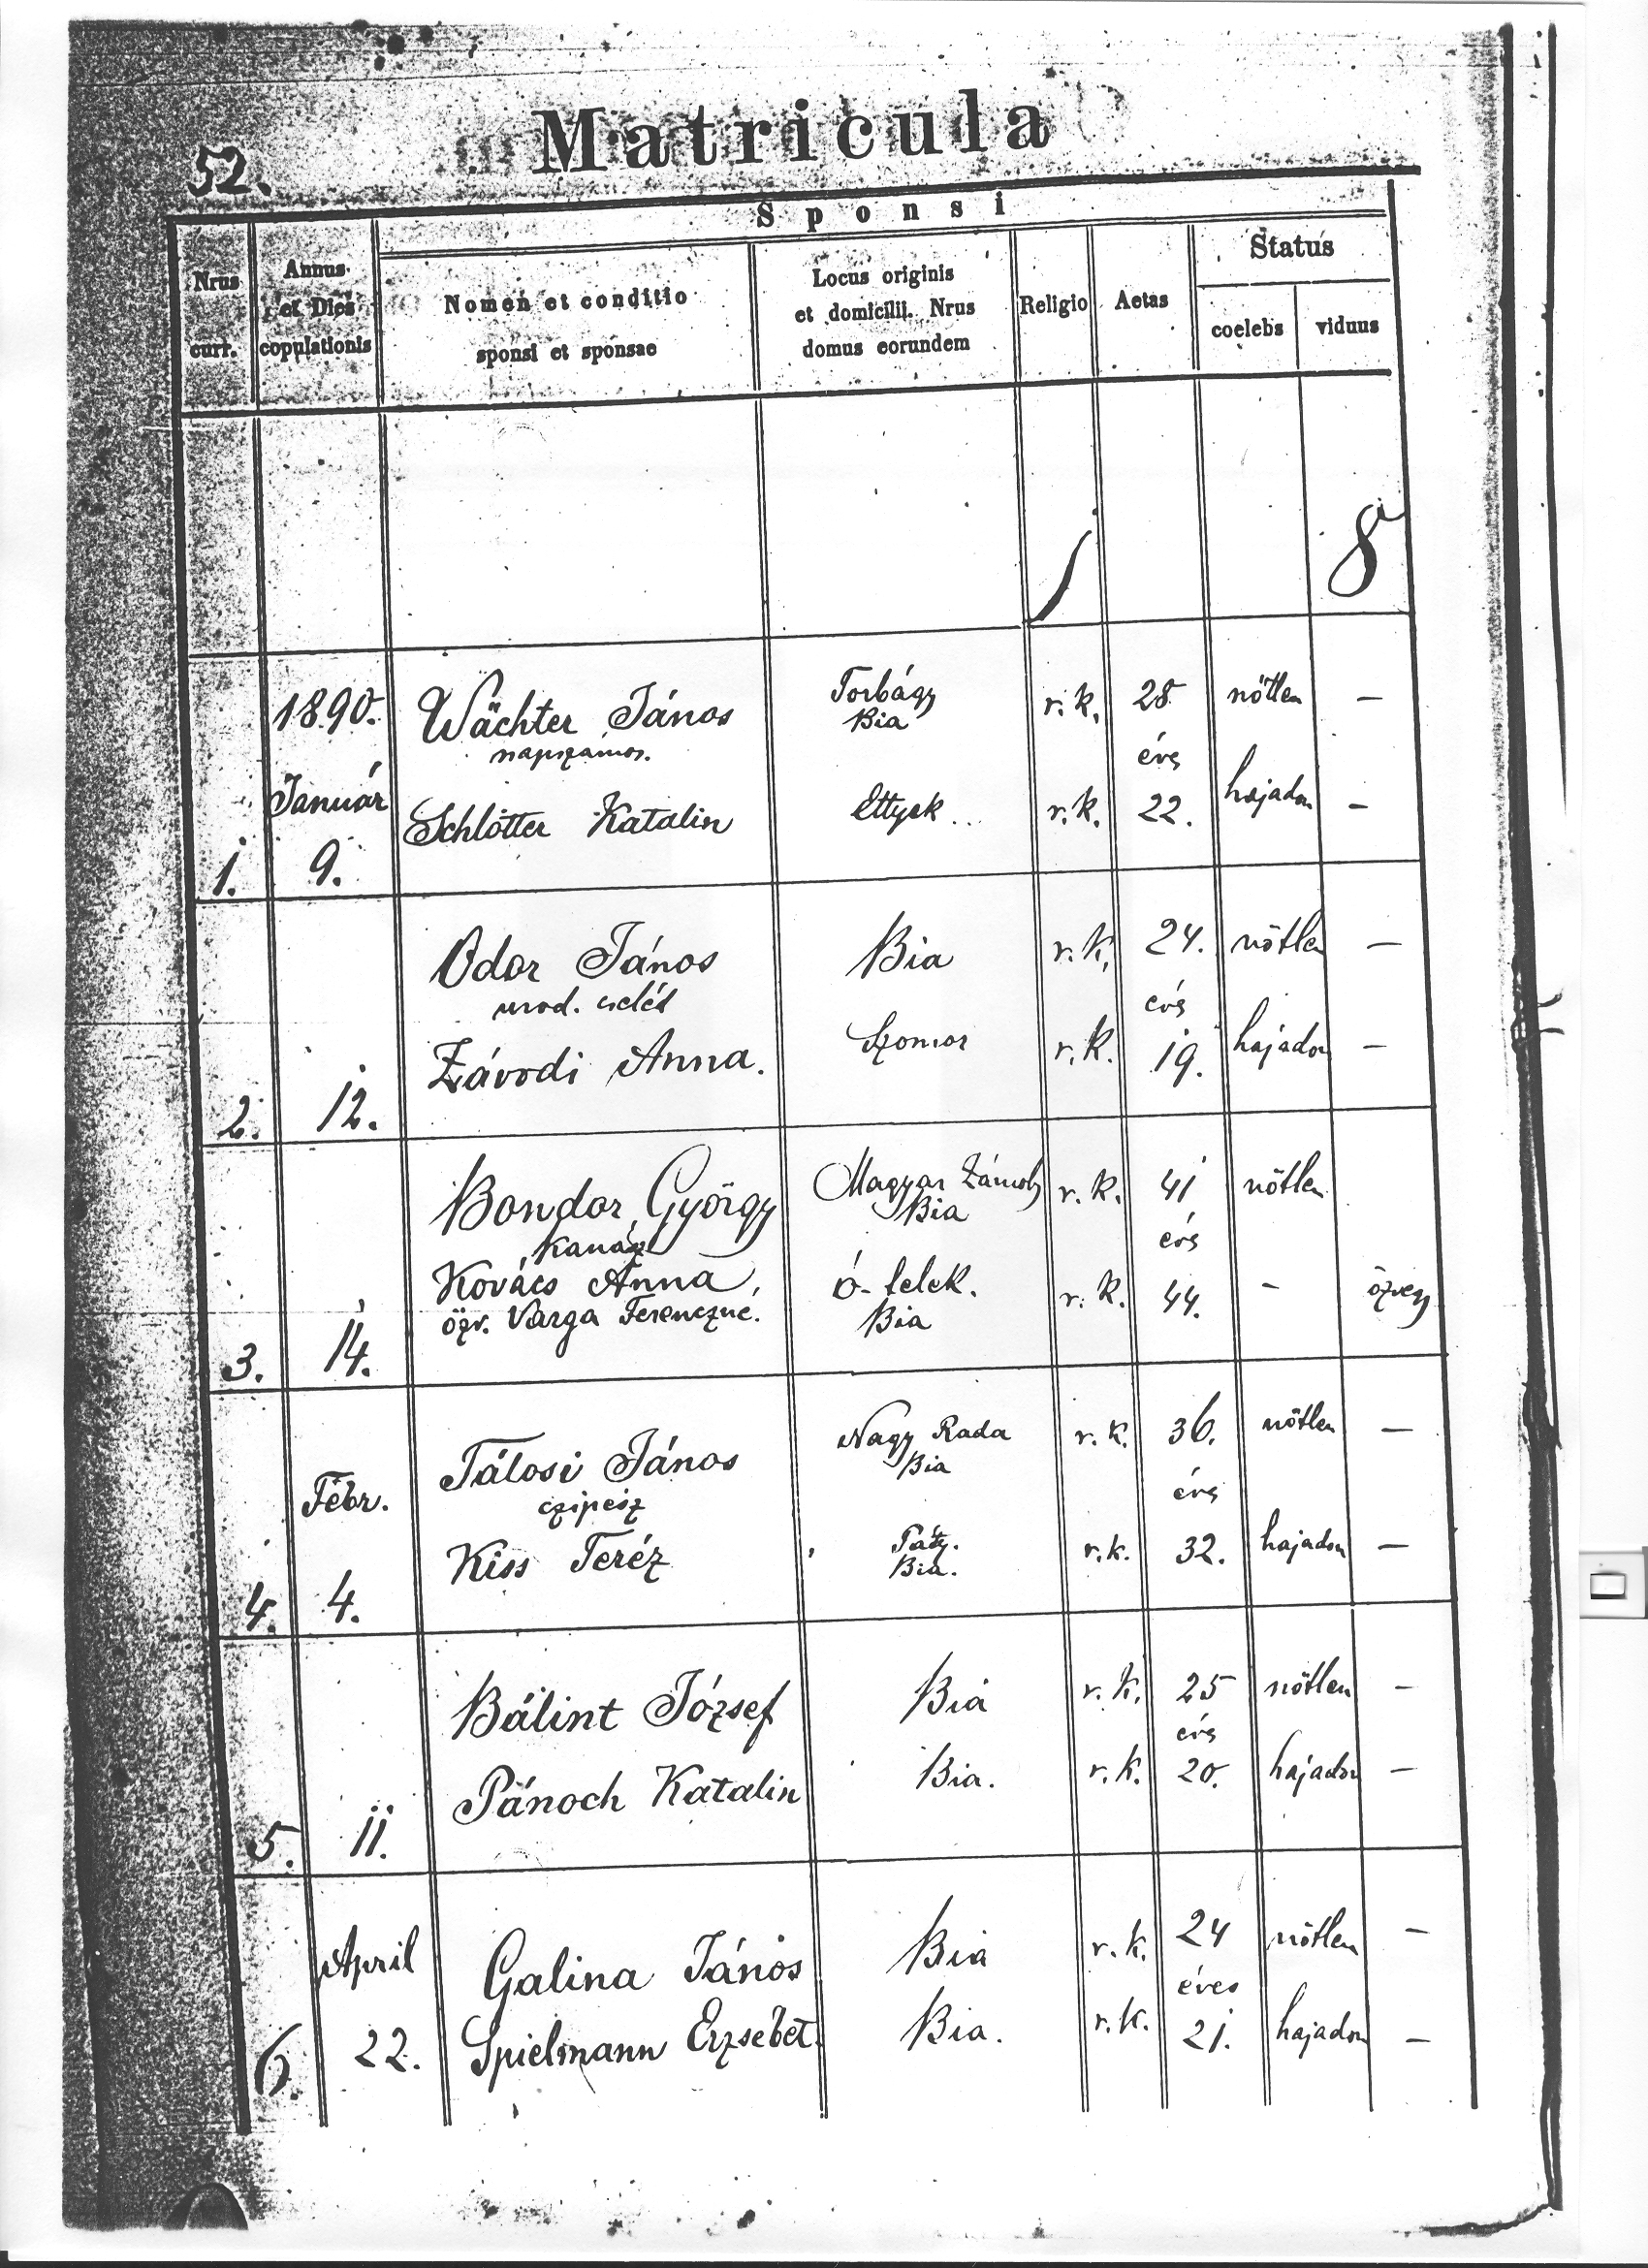 52.
Matricula
Sponsi
Nrus curr.
Annus et Dies copulationis
Nomen et conditio sponsi et sponsae
Locus originis et domicilii. Nrus domus eorundem
Religio
Aetas
Status
coelebs
viduus
1890. Wächter János Torbágy Bia r. k. 28 nőtlen —
napszamos. éves
Január Schlötter Katalin Ettyek r. k. 22. hajadon —
1. 9.
Odor János Bia r. k. 24. nőtlen —
urod. cseléd évs
Závodi Anna. Szomor r. k. 19. hajadon —
2. 12.
Bondor György Magyar Zámoly Bia r. k. 41 nőtlen
Kanász évs
Kovács Anna ó-telek. Bia r. k. 44. - özvegy
özv. Varga Ferenczné.
3. 14.
Tálosi János Nagy Rada Bia r. k. 36. nőtlen —
Febr. czipész évs
Kiss Teréz Páty. Bia. r. k. 32. hajadon —
4. 4.
Bálint József Bia r. k. 25 nőtlen -
évs
Pánoch Katalin Bia. r. k. 20. hajadon —
5. 11.
April Galina János Bia r. k. 24 nőtlen —
éves
6. 22. Spielmann Erzsebet Bia. r. k. 21. hajadon —